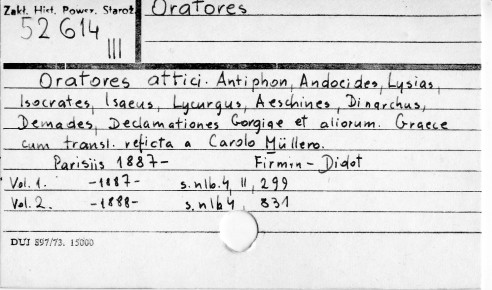 Zakł. Hist. Powsz. Staroż.
Oratores
52614
III
Oratores attici. Antiphon, Andocides, Lysias,
Isocrates, Isaeus, Lycurgus, Aeschines, Dinarchus,
Demades, Declamationes Gorgiae et aliorum. Graece
cum transl. reficta a Carolo Müllero.
Parisiis 1887- Firmin-Didot
Vol. 1. -1887- s. nlb. 4, II, 299
Vol. 2. -1888- s. nlb 4, 831
DUJ 897/73. 15000